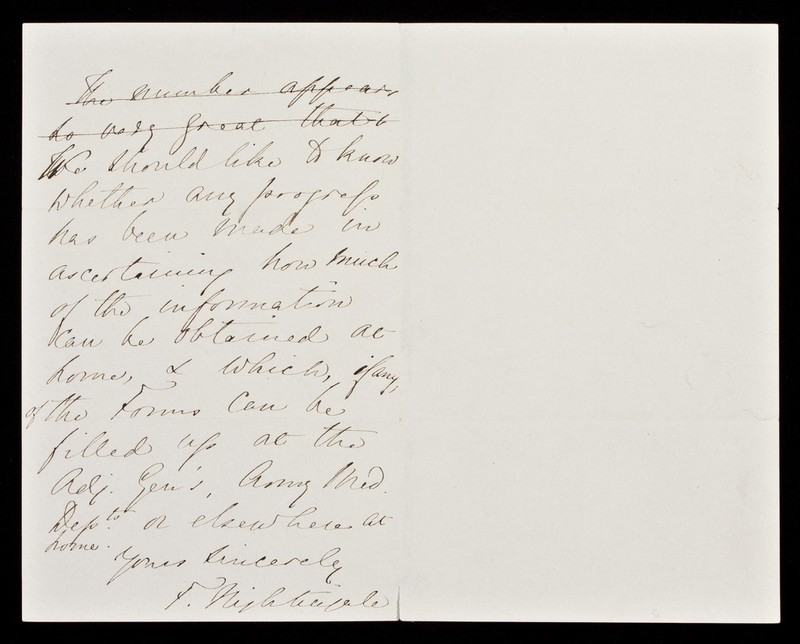 The number appears
so very great that
We should like to know
whether any progress
has been made in
ascertaining how much
of the information
can be obtained at
home, & which, if any,
of the Forms can be
filled up at the
Adj. Gen's, Army Med.
Dep.ts or elsewhere at
home.
Yours sincerely
F. Nightingale